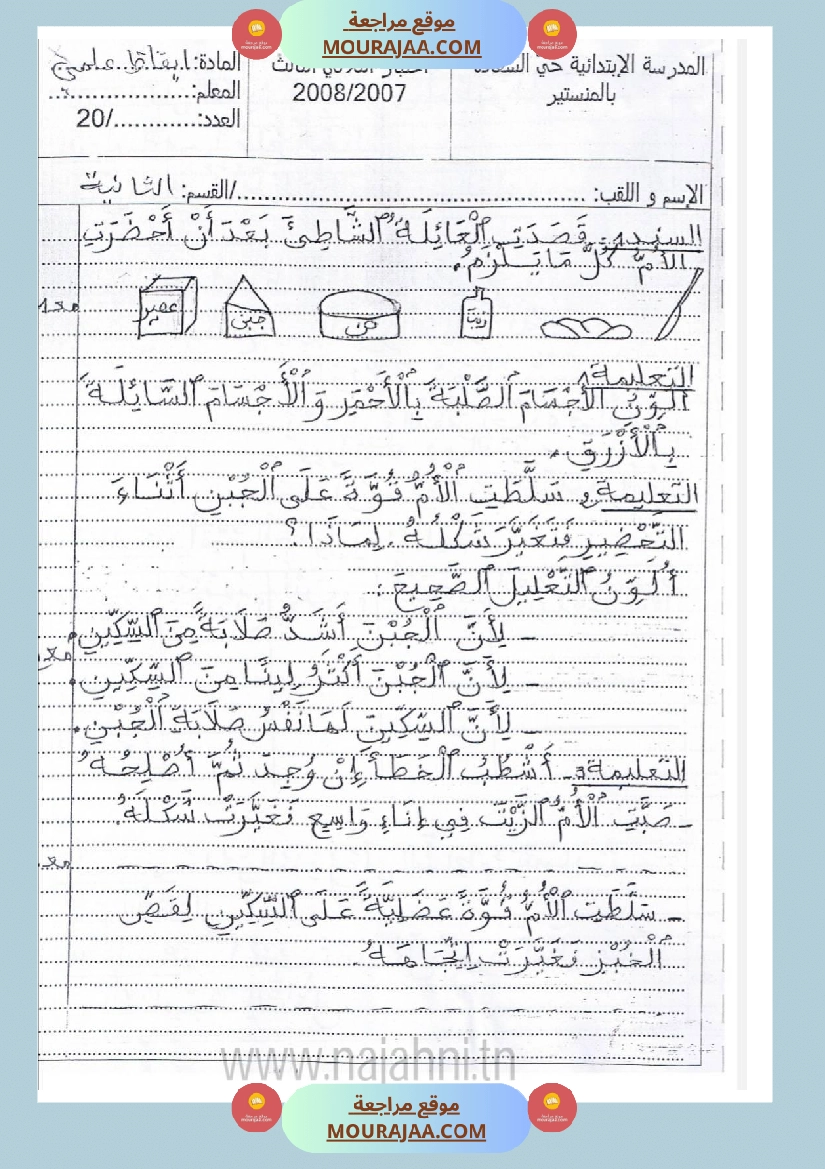 موقع مراجعة
MOURAJAA.COM
المدرسة الإبتدائية حي
بالمنستير
2008/2007
المادة: ايقاظ علمي
المعلم:....................
العدد:............/20
الإسم و اللقب: ................................................../القسم: الثانية
السند1: قَصَدَتِ الْعَائِلَةُ الشَّاطِئَ بَعْدَ أَنْ أَحْضَرَتِ
الأُمُّ كُلَّ مَا يَلْزَمُ.
عصير
جبن
زيت
مع1
التعليمة1
أُلَوِّنُ الأَجْسَامَ الصَّلْبَةَ بِالْأَحْمَرِ وَالْأَجْسَامَ السَّائِلَةَ
بِالْأَزْرَقِ.
التعليمة2 سَلَّطَتِ الْأُمُّ قُوَّةً عَلَى الْجُبْنِ أَثْنَاءَ
التَّحْضِيرِ فَتَغَيَّرَ شَكْلُهُ. لِمَاذَا؟
أُلَوِّنُ التَّعْلِيلَ الصَّحِيحَ:
- لِأَنَّ الْجُبْنَ أَشَدُّ صَلَابَةً مِنَ السِّكِّينِ.
- لِأَنَّ الْجُبْنَ أَكْثَرُ لِينًا مِنَ السِّكِّينِ.
- لِأَنَّ السِّكِّينَ لَهَا نَفْسُ صَلَابَةِ الْجُبْنِ.
التعليمة3- أَشْطُبُ الْخَطَأَ إِنْ وُجِدَ ثُمَّ أُصْلِحُهُ
- صَبَّتِ الْأُمُّ الزَّيْتَ فِي إِنَاءٍ وَاسِعٍ فَغَيَّرَتْ شَكْلَهُ.
- سَلَّطَتِ الْأُمُّ قُوَّةً عَضَلِيَّةً عَلَى السِّكِّينِ لِقَصِّ
الْخُبْزِ فَغَيَّرَتْ اتِّجَاهَهُ
www.najahni.tn
موقع مراجعة
MOURAJAA.COM